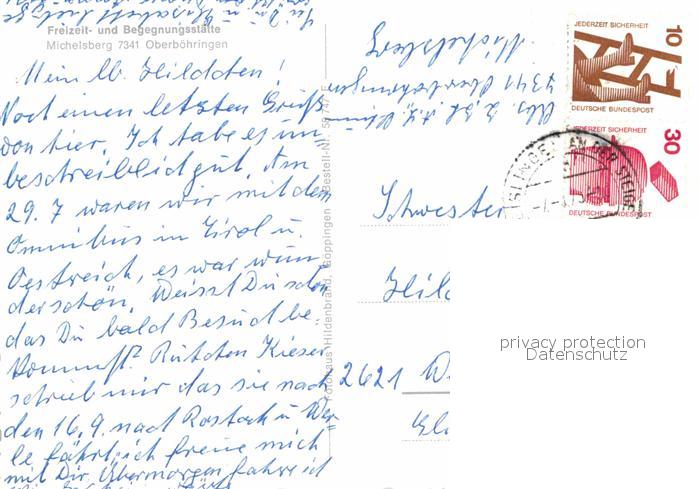 Freizeit- und Begegnungsstätte
Michelsberg 7341 Oberböhringen
Mein lb. Hildchen!
Noch einen letzten Gruß
von hier. Ich habe es un-
beschreiblich gut. Am
29.7 waren wir mit dem
Omnibus in Tirol u.
Oestreich, es war wun-
derschön. Weisst Du schon
das Du bald Besuch be-
kommst? Rutchen Kieser
schrieb mir das sie nach
den 16.9. nach Rostock u
fährt ich freue mich
mit Dir. Übermorgen fahre ich
Fotohaus Hildenbrand, Göppingen Bestell-Nr.
Michelsberg
7341 Oberböhringen
Schwester
Hild
2621
10
JEDERZEIT SICHERHEIT
DEUTSCHE BUNDESPOST
30
JEDERZEIT SICHERHEIT
DEUTSCHE BUNDESPOST
AN DER STEIGE
privacy protection
Datenschutz